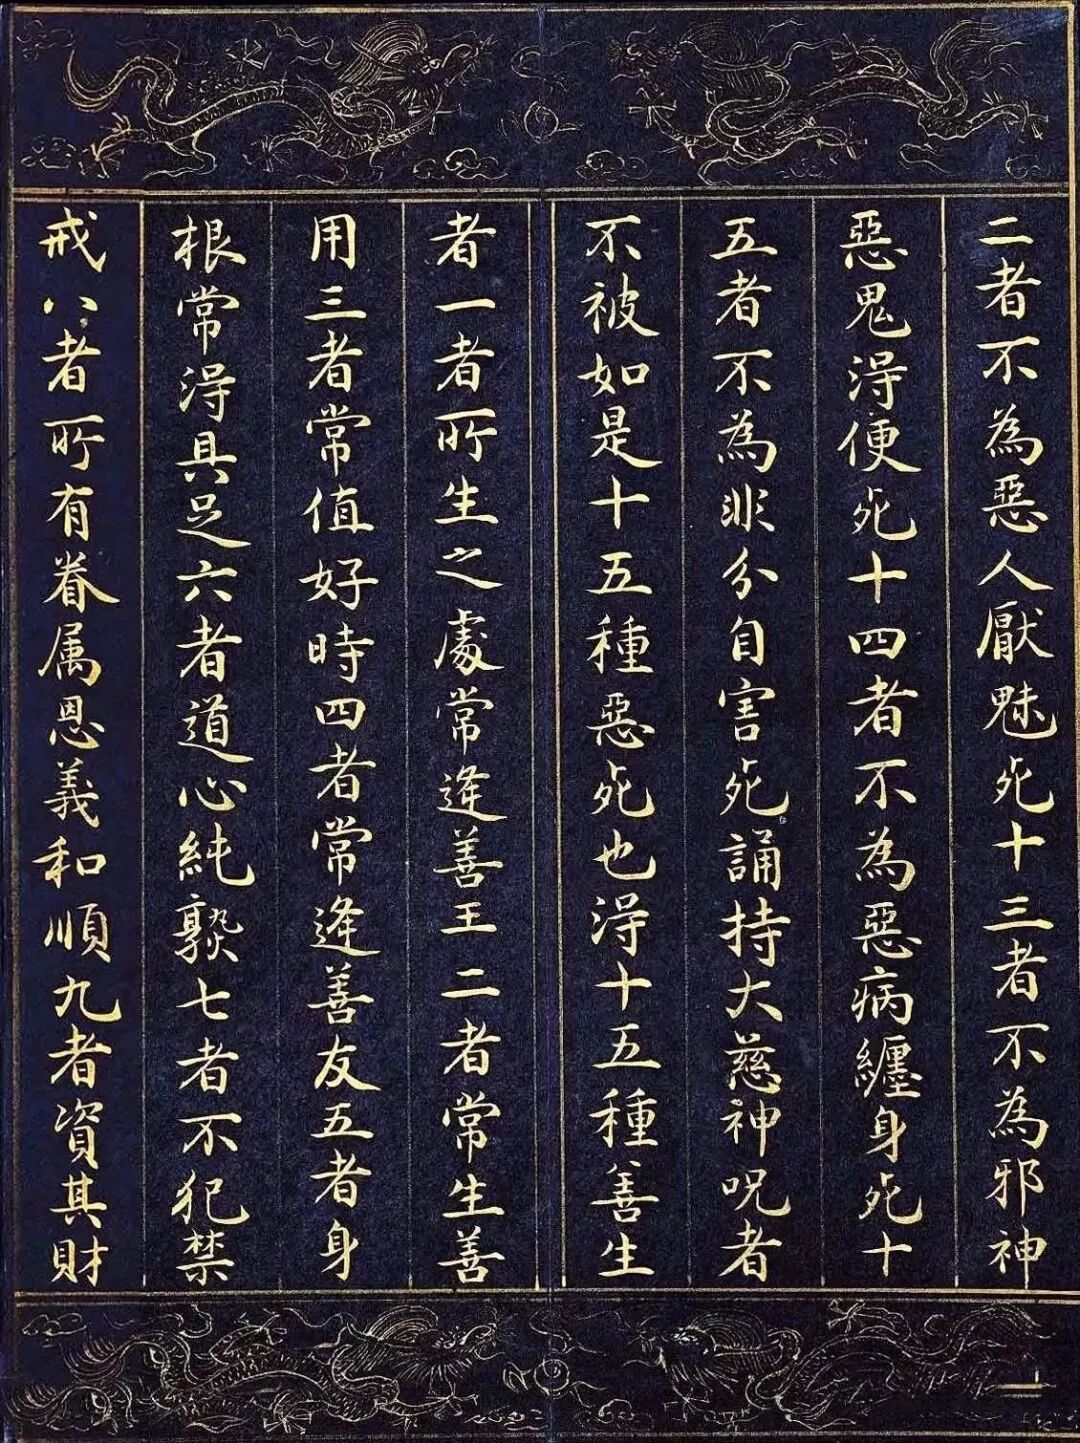 二者不為惡人厭魅死十三者不為邪神
惡鬼淂便死十四者不為惡病纏身死十
五者不為非分自害死誦持大慈神呪者
不被如是十五種惡死也淂十五種善生
者一者所生之處常逢善王二者常生善
用三者常值好時四者常逢善友五者身
根常淂具足六者道心純熟七者不犯禁
戒八者所有眷属恩義和順九者資其財